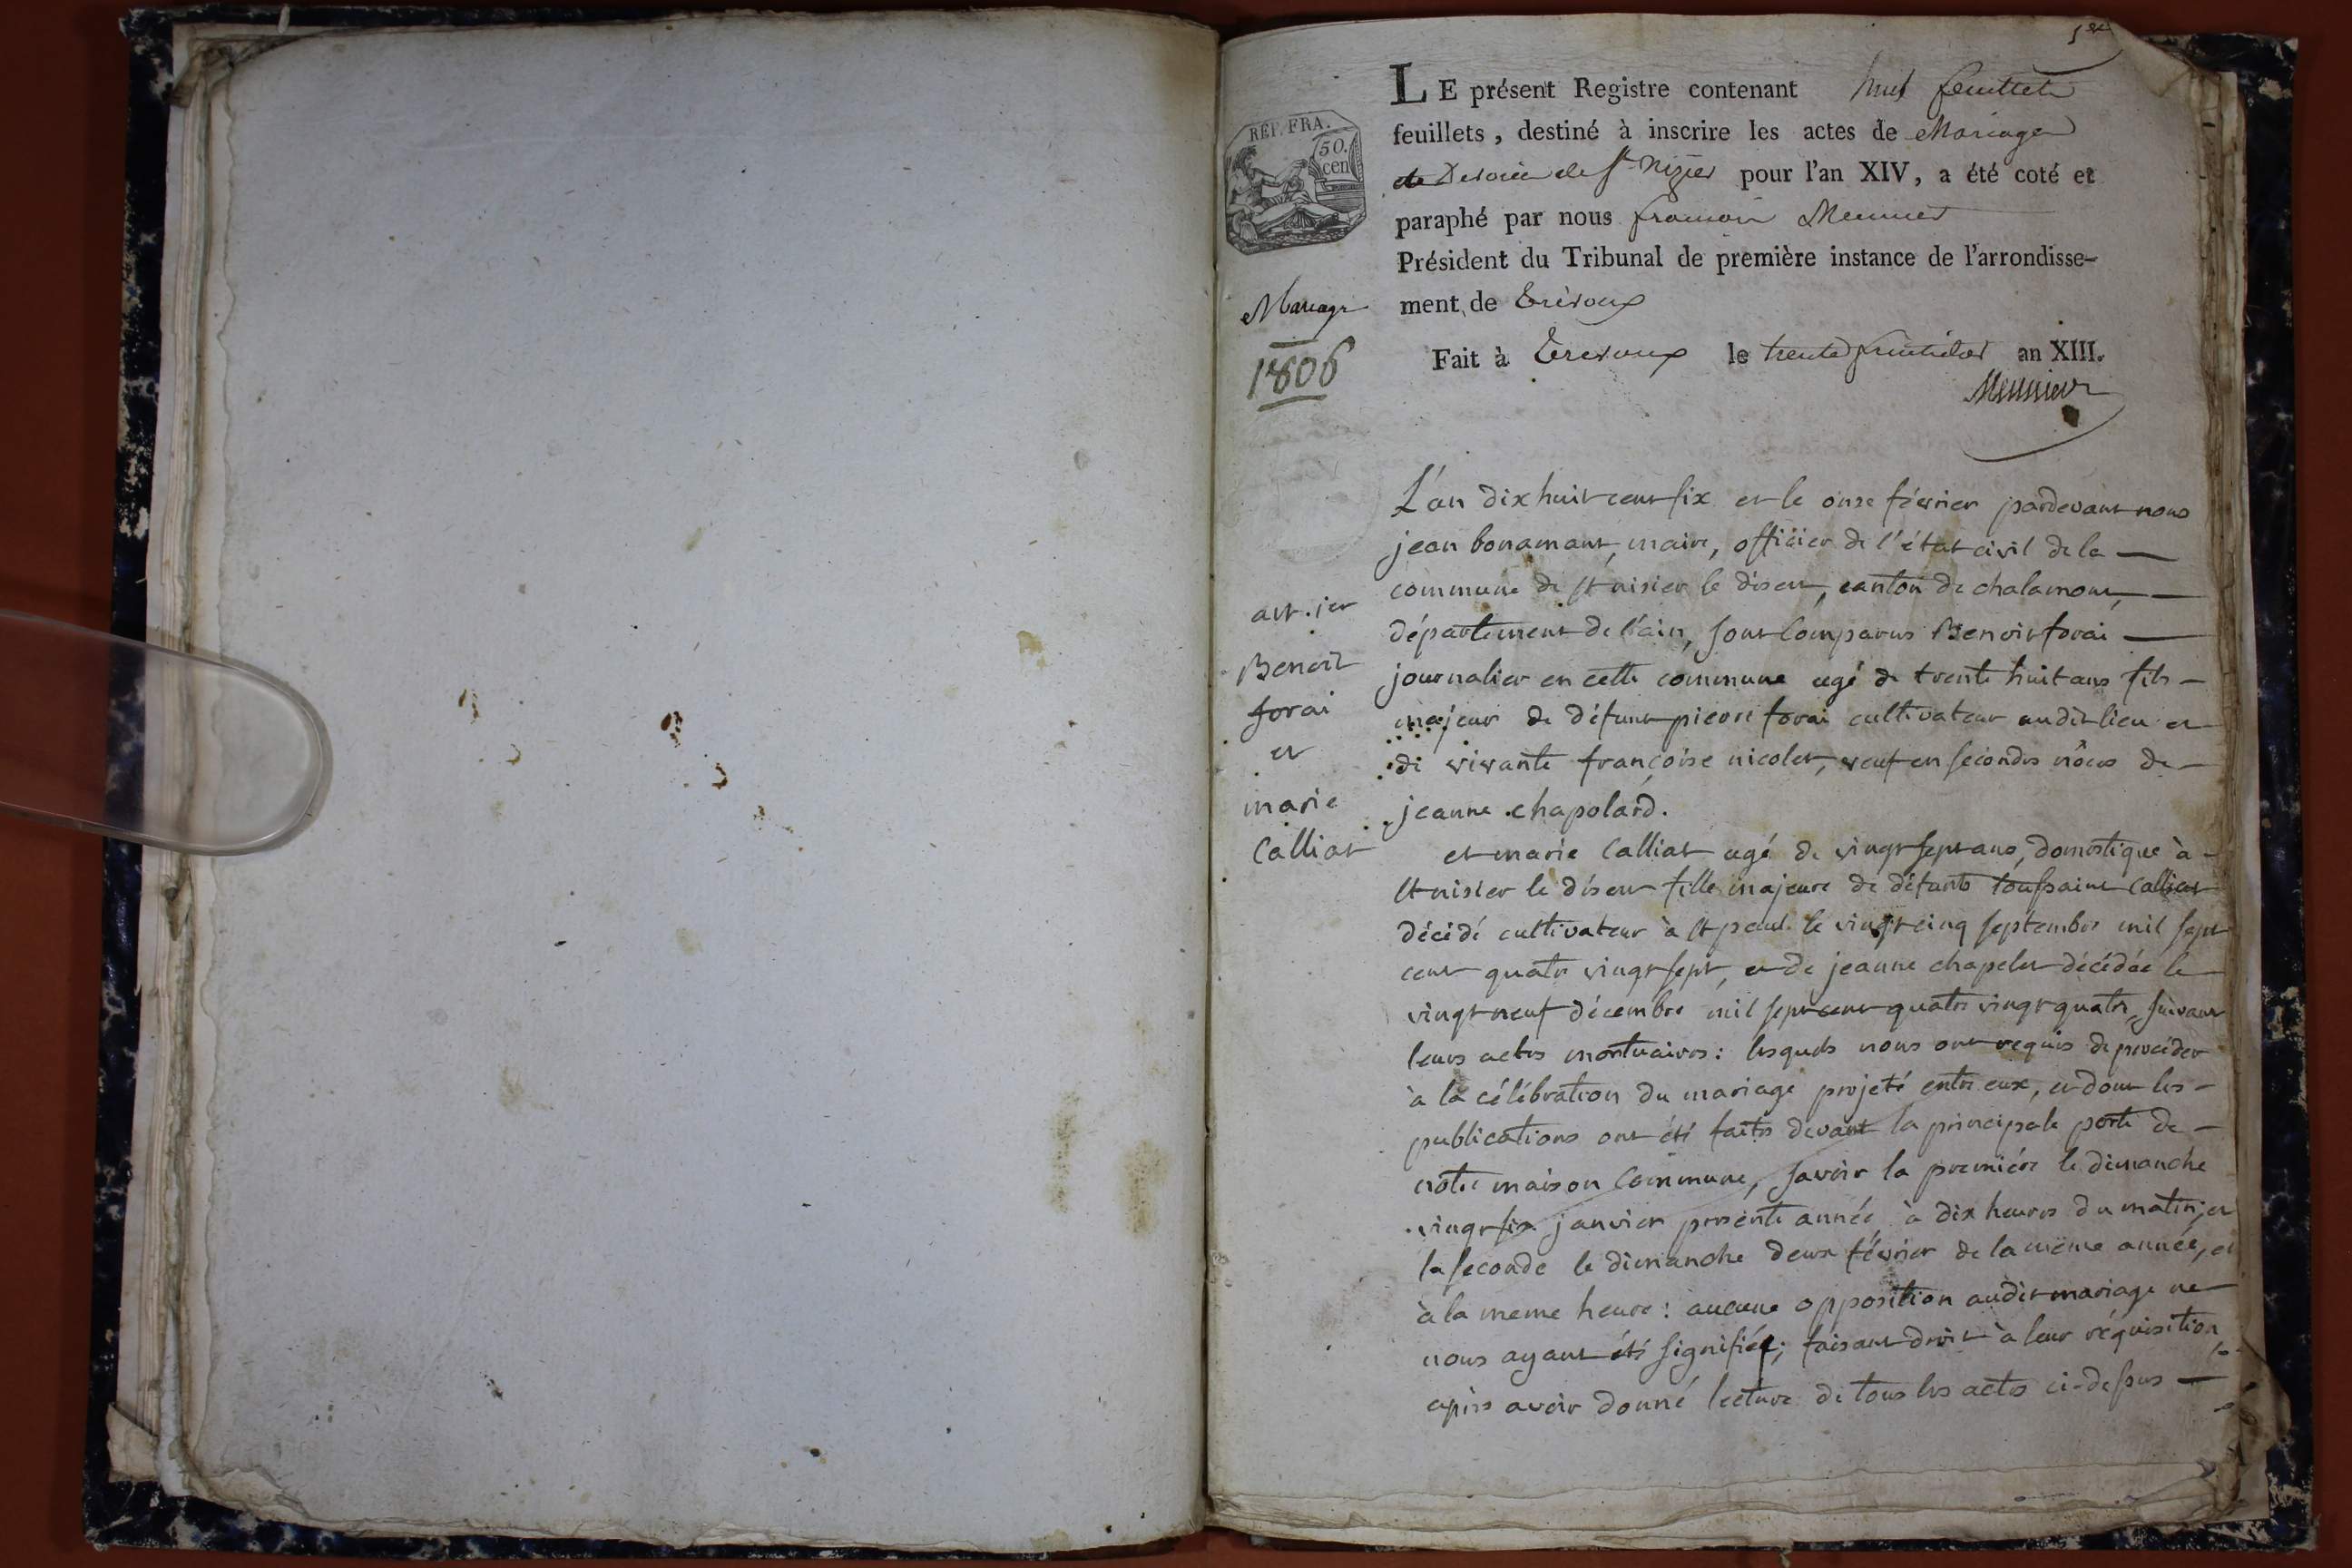 1er
LE présent Registre contenant huit feuillets
feuillets, destiné à inscrire les actes de Mariage
de St Nizier pour l'an XIV, a été coté et
paraphé par nous françois Meunier
Président du Tribunal de première instance de l'arrondisse-
ment de Trévoux
Fait à Trevoux le trente fructidor an XIII.
Meunier
REP. FRA.
50.
cen
Mariage
1806
L'an dix huit cent six et le onze février pardevant nous
jean bonamant, maire, officier de l'état civil de la
commune de st nisier le disert, canton de chalamont,
département de l'ain, sont comparus Benoit forai
journalier en cette commune agé de trente huit ans fils
majeur de défunt pierre forai cultivateur audit lieu et
de vivante françoise nicolet, veuf en secondes nôces de
jeanne chapolard.
art. ier
Benoit
forai
et
marie
Calliat
et marie Calliat agé de vingt sept ans, domestique à
st nisier le désert fille majeure de défunts toussaint Calliat
décédé cultivateur à st paul le vingt cinq septembre mil sept
cent quatre vingt sept, et de jeanne chapelet décédée le
vingt neuf décembre mil sept cent quatre vingt quatre, suivant
leurs actes mortuaires : lesquels nous ont requis de procéder
à la célébration du mariage projeté entre eux, et dont les
publications ont été faites devant la principale porte de
notre maison Commune, savoir la premiére le dimanche
vingt six janvier presente année à dix heures du matin, et
la seconde le dimanche deux février de la même année, et
à la meme heure : aucune opposition audit mariage ne
nous ayant été signifiée; faisant droit à leur réquisition,
apres avoir donné lecture de tous les actes ci-dessus